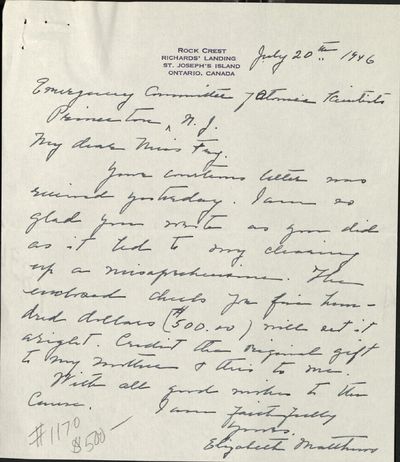 ROCK CREST
RICHARDS' LANDING
ST. JOSEPH'S ISLAND
ONTARIO, CANADA
July 20th 1946
Emergency Committee of Atomic Scientists
Princeton, N. J.
My dear Miss Fry.
Your courteous letter was
received yesterday. I am so
glad you wrote as you did
as it led to my clearing
up a misapprehension. The
enclosed check for five hun-
dred dollars ($500.00) will set it
aright. Credit the original gift
to my mother & this to me.
With all good wishes to the
Cause.
I am faithfully
yours,
Elizabeth Matthews
#1170
$500—